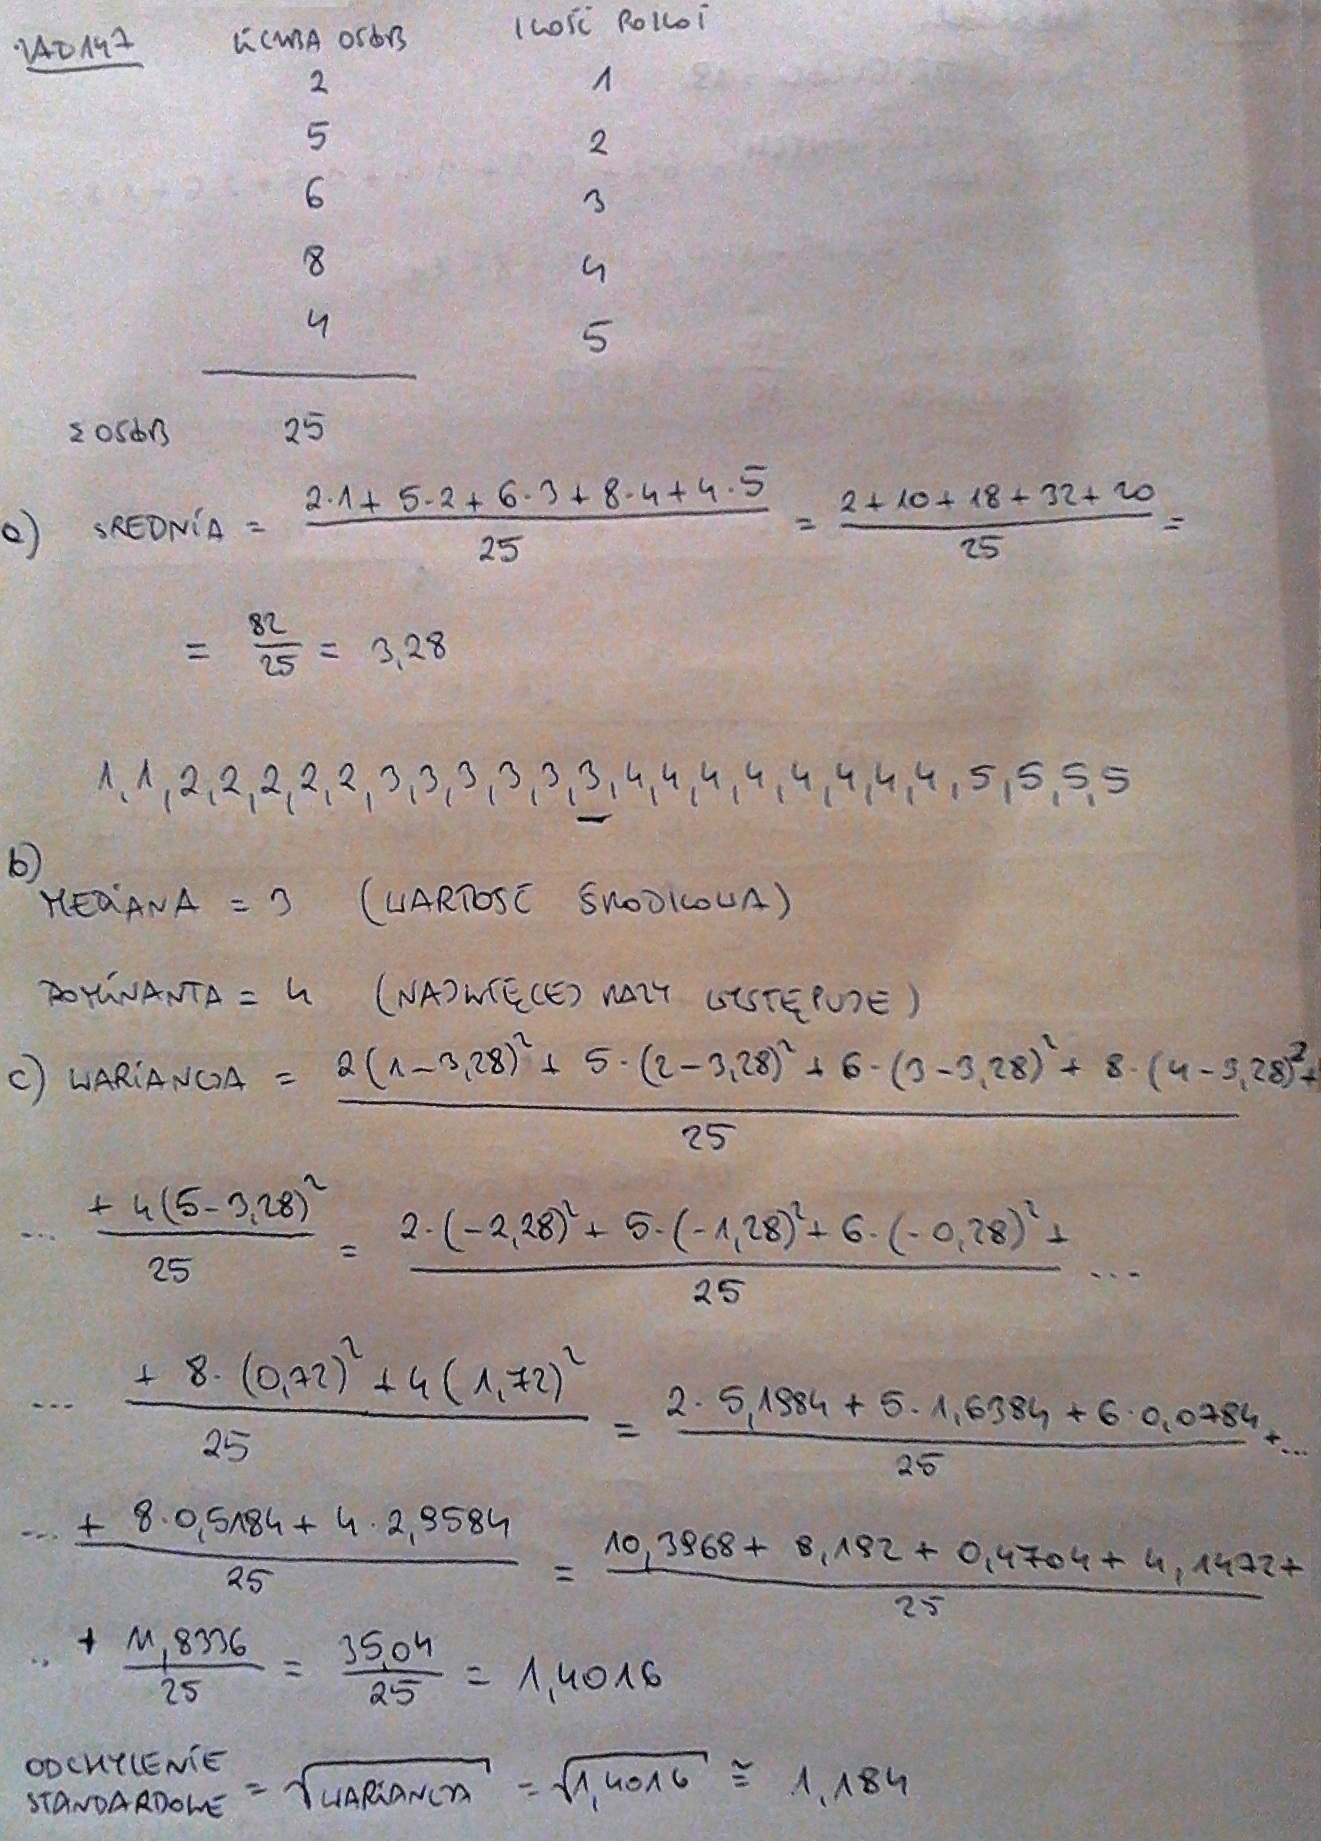 ZAD 147 LICZBA OSÓB ILOŚĆ POKOI
2 1
5 2
6 3
8 4
4 5
Σ OSÓB 25
a) ŚREDNIA = \frac{2·1 + 5·2 + 6·3 + 8·4 + 4·5}{25} = \frac{2+10+18+32+20}{25} =
= \frac{82}{25} = 3,28
1,1,2,2,2,2,2,3,3,3,3,3,3,4,4,4,4,4,4,4,4,5,5,5,5
b)
MEDIANA = 3 (WARTOŚĆ ŚRODKOWA)
DOMINANTA = 4 (NAJWIĘCEJ RAZY WYSTĘPUJE)
c) WARIANCJA = \frac{2(1-3,28)² + 5·(2-3,28)² + 6·(3-3,28)² + 8·(4-3,28)² +}{25}
... \frac{+ 4(5-3,28)²}{25} = \frac{2·(-2,28)² + 5·(-1,28)² + 6·(-0,28)² +}{25} ...
... \frac{+ 8·(0,72)² + 4(1,72)²}{25} = \frac{2·5,1984 + 5·1,6384 + 6·0,0784}{25} + ...
... \frac{+ 8·0,5184 + 4·2,9584}{25} = \frac{10,3968 + 8,192 + 0,4704 + 4,1472 +}{25}
.. + \frac{11,8336}{25} = \frac{35,04}{25} = 1,4016
ODCHYLENIE
STANDARDOWE = √WARIANCJA = √1,4016 ≅ 1,184